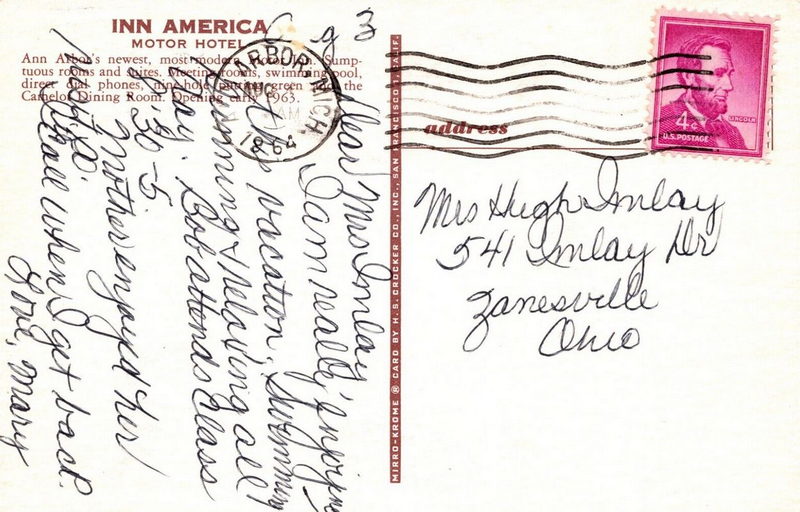 INN AMERICA
MOTOR HOTEL
Ann Arbor's newest, most modern Motor Inn. Sump-
tuous rooms and suites. Meeting rooms, swimming pool,
direct dial phones, nine-hole putting green and the
Camelot Dining Room. Opening early 1963.
ARBOR, MICH.
AM
1964
Dear Mrs Imlay,
I am really enjoying
vacation. Swimming
sunning & relaxing all
day. Bob attends class
8:30-5
Mother enjoyed her
I'll call when I get back.
Love, Mary
MIRRO-KROME ® CARD BY H. S. CROCKER CO., INC., SAN FRANCISCO 1, CALIF.
address
4¢
LINCOLN
U.S. POSTAGE
Mrs Hugh Imlay
541 Imlay Dr
Zanesville
Ohio